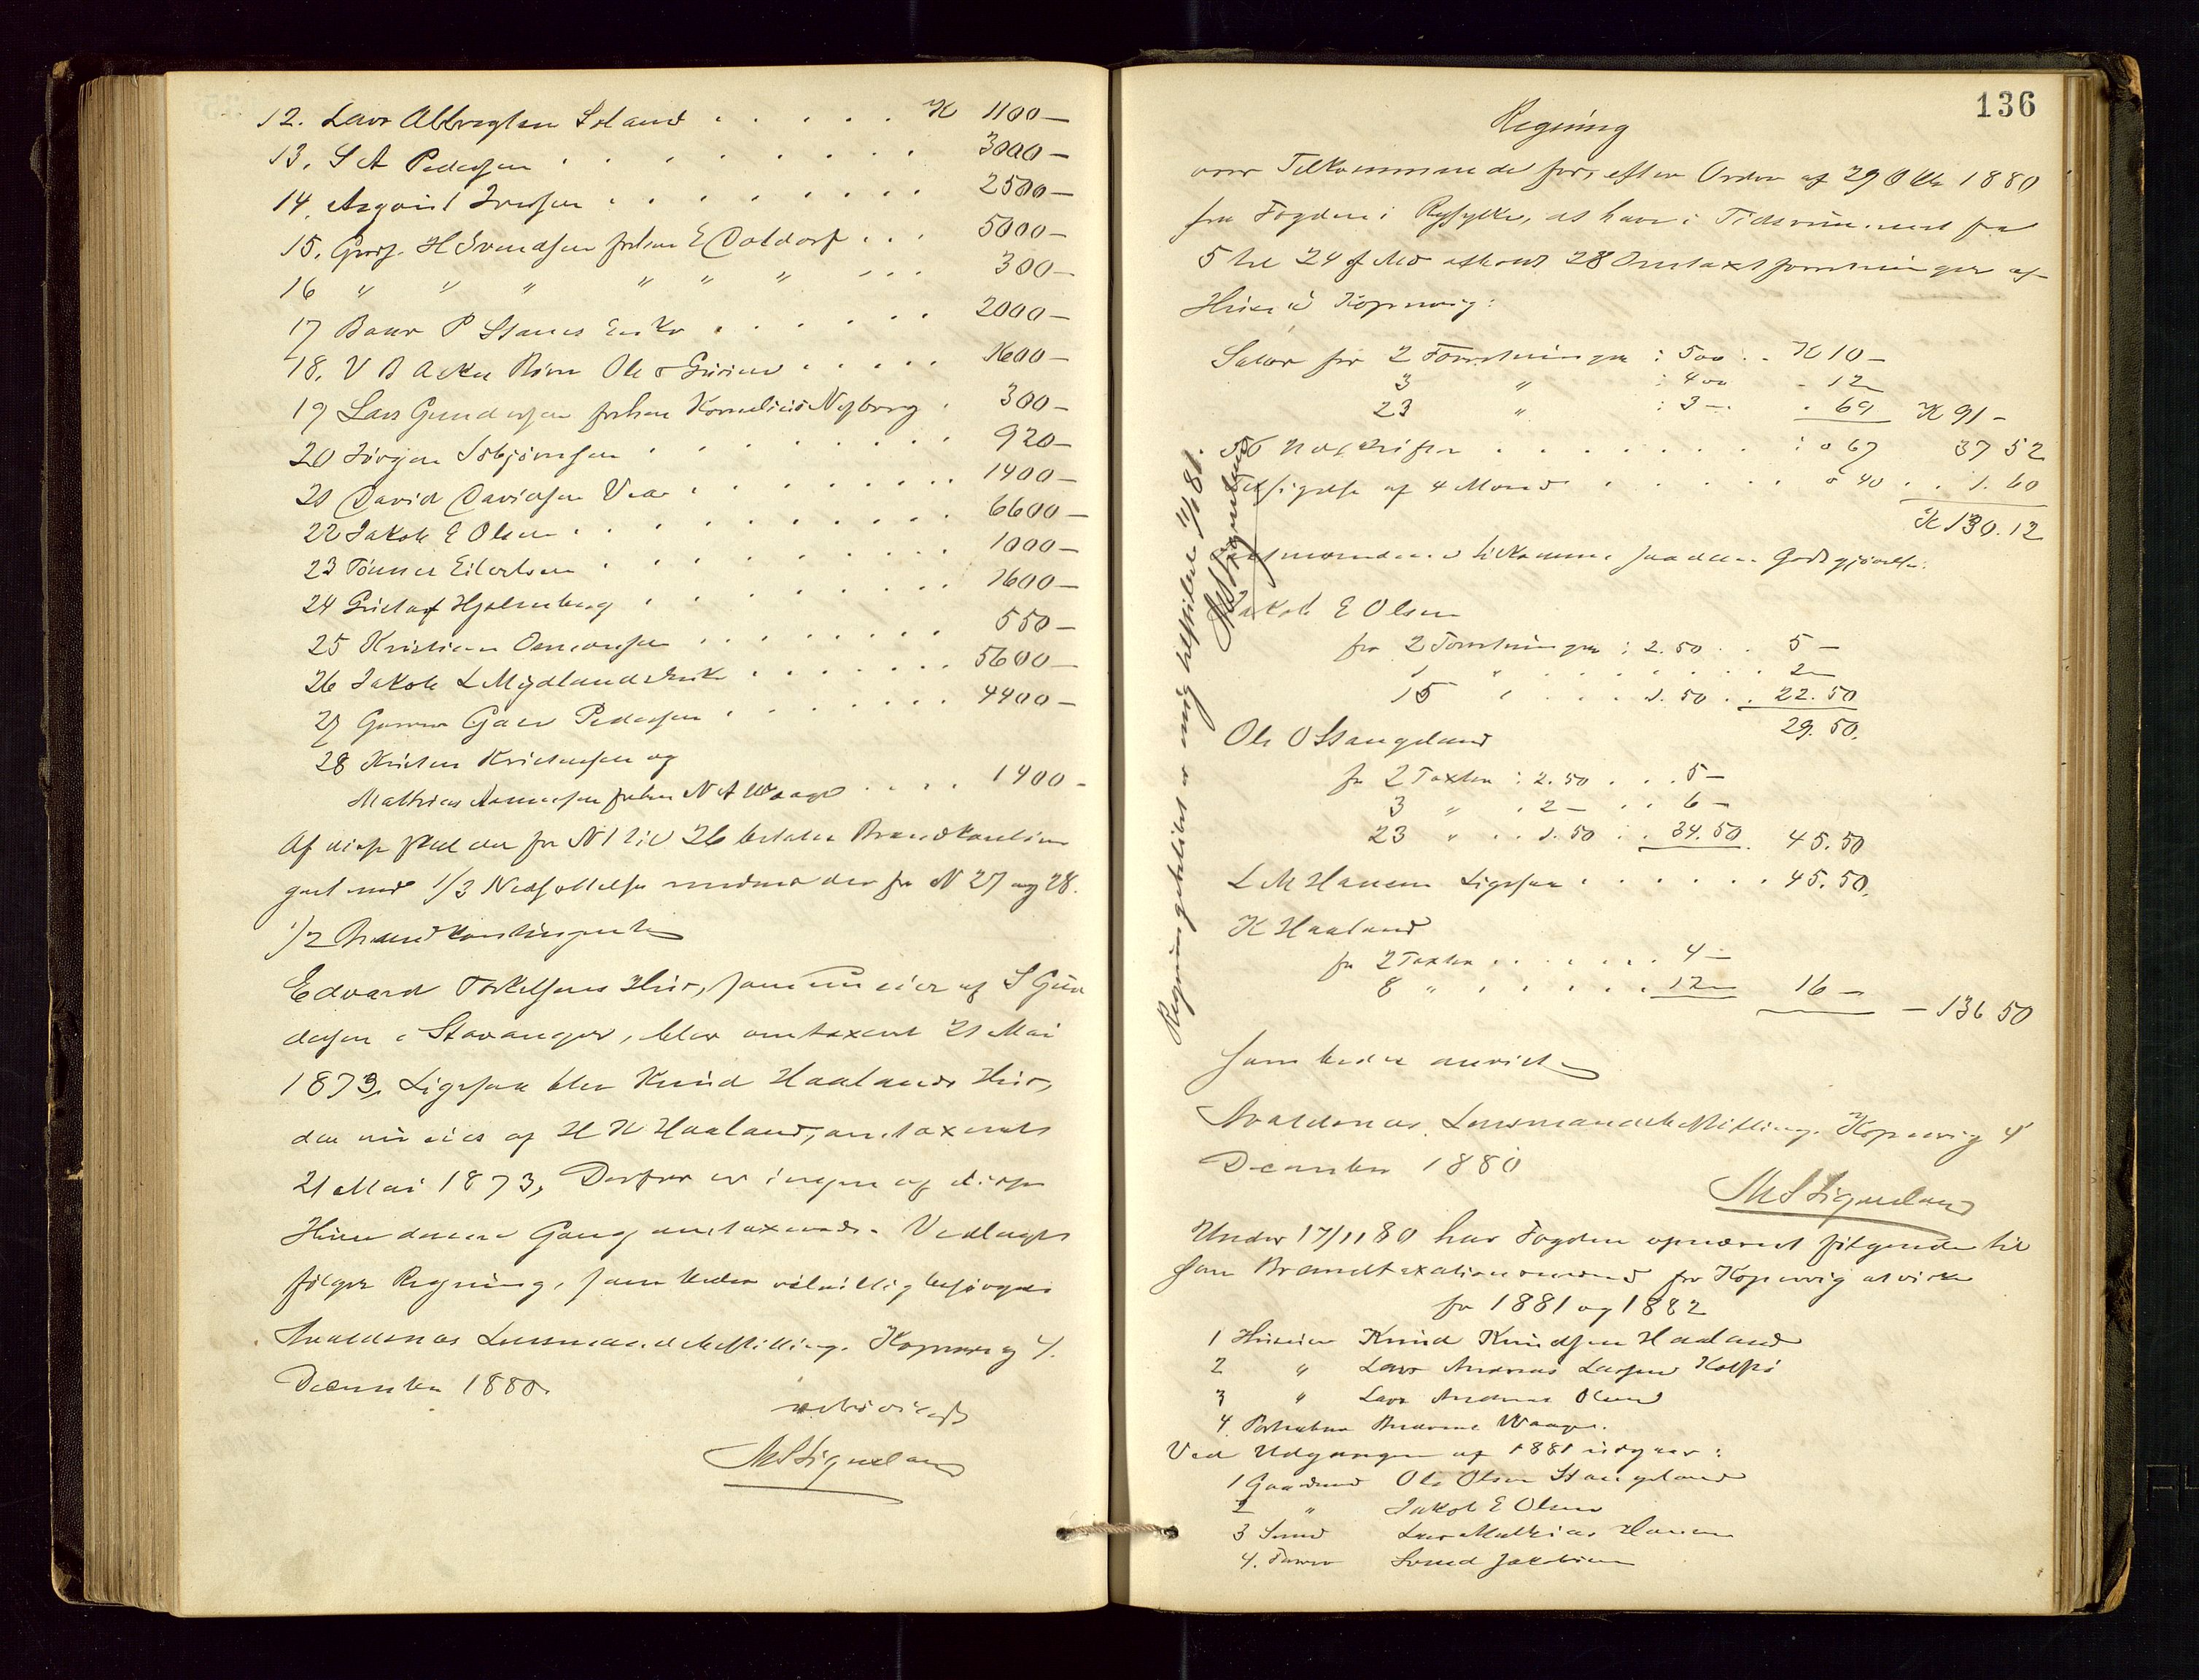 12. Lars Albregtsen Soland . . . . . K 1100 —
13. S A Pedersen . . . . . . . . 3000 —
14. Asgaut Iversen . . . . . . . . 2500 —
15. H Svendsen forhen E Doldorf . . . 5000 —
16 " " " " " " . . . 300 —
17 P Stanes Enke . . . . . . 2000 —
18. Ole & . . . . . 1600 —
19 Lars Gundersen forhen Kornelius Nyborg . 300 —
20 Jörgen . . . . . . . . 920 —
21 David Davidsen Vea . . . . . . . . 1400 —
22 Jakob E Olsen . . . . . . . . 6600 —
23 Tönnes Eilertsen . . . . . . . 1000 —
24 Gustaf Hjelmberg . . . . . . . 1600 —
25 Kristian . . . . . . . 550 —
26 Jakob L Myhlands Enke . . . . . . 5600 —
27 Pedersen . . . . . . 4400 —
28 Kristen Kristensen og
Mathias forhen N A Waage . . . . 1400 -
Af disse skal der for N 1 til 26 betales Brandkontin
gent med 1/3 Nedsættelse medens der for N 27 og 28.
1/2 Brandkontingent
Edvard Torkelsens Hus, som nu eies af S Gun
dersen i Stavanger, blev omtaxeret 21 Mai
1873, Ligesaa blev Knud Haalands Hus,
der nu eies af H K Haaland, omtaxeret
21 Mai 1873, Derfor er ingen af disse
Huse denne Gang omtaxerede. Vedlagt
følger Regning, som bedes velvillig besørget
Avaldsnes Lensmandsbestilling. Kopervig 4.
December 1880.
ærbødigst
M S Ligueland
136
Regning
over Tilkommende for, efter Ordre af 29 Oktr 1880
fra Fogden i Ryfylke, at have i Tidsrummet fra
5 til 24 f. Md afholdt 28 Omtaxtforretninger af
Huse i Kopervig:
Salær for 2 Forretninger : 500 . . K 10 —
3 " : 400 . 12
23 " : 3 — . 69 K 91 —
56 . . . . . . . : o 67 37 52
Tilsigelse af 4 Mænd . . . . . o 40 . . 1.60
K 130.12
tilkommer saadan Godtgjørelse:
Jakob E Olsen
for 2 Forretninger : 2.50 . . 5 —
1 " . . . . . . . 2 —
15 " . . . 1.50 . . 22.50
29.50.
Ole O Stangeland
for 2 Taxter : 2.50 . . . 5 —
3 " . 2 — . . 6 —
23 " . . 1.50 . . 34.50. 45.50
L M Hansen Ligesaa . . . . . . 45.50.
K Haaland
for 2 Taxter . . . . . . 4 —
8 " . . . . . 12 — 16 — — 136 50
som bedes anvist
Avaldsnes Lensmandsbestilling. Kopervig 4
December 1880
M S Ligueland
Under 17/11 80 har Fogden opnævnt følgende til
som Brandtaxationsmænd for Kopervig at virke
for 1881 og 1882
1 Huseier Knud Knudsen Haaland
2 " Lars Andreas Larsen Kolstø
3 " Lars Andreas Olsen
4. Waage.
Ved Udgangen af 1881 udgaar:
1 Gaardmd Ole Olsen Stangeland
2 " Jakob E Olsen
3 Smed Lars Mathias Hansen
4. Farver Svend Jakobsen
Regningsbeløbet er mig tilstillet 11/1 81.
M S Ligueland